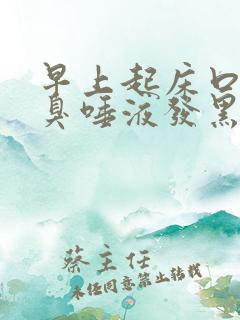 早上起床口
臭唾液發黑
蔡主任
未经同意禁止转载